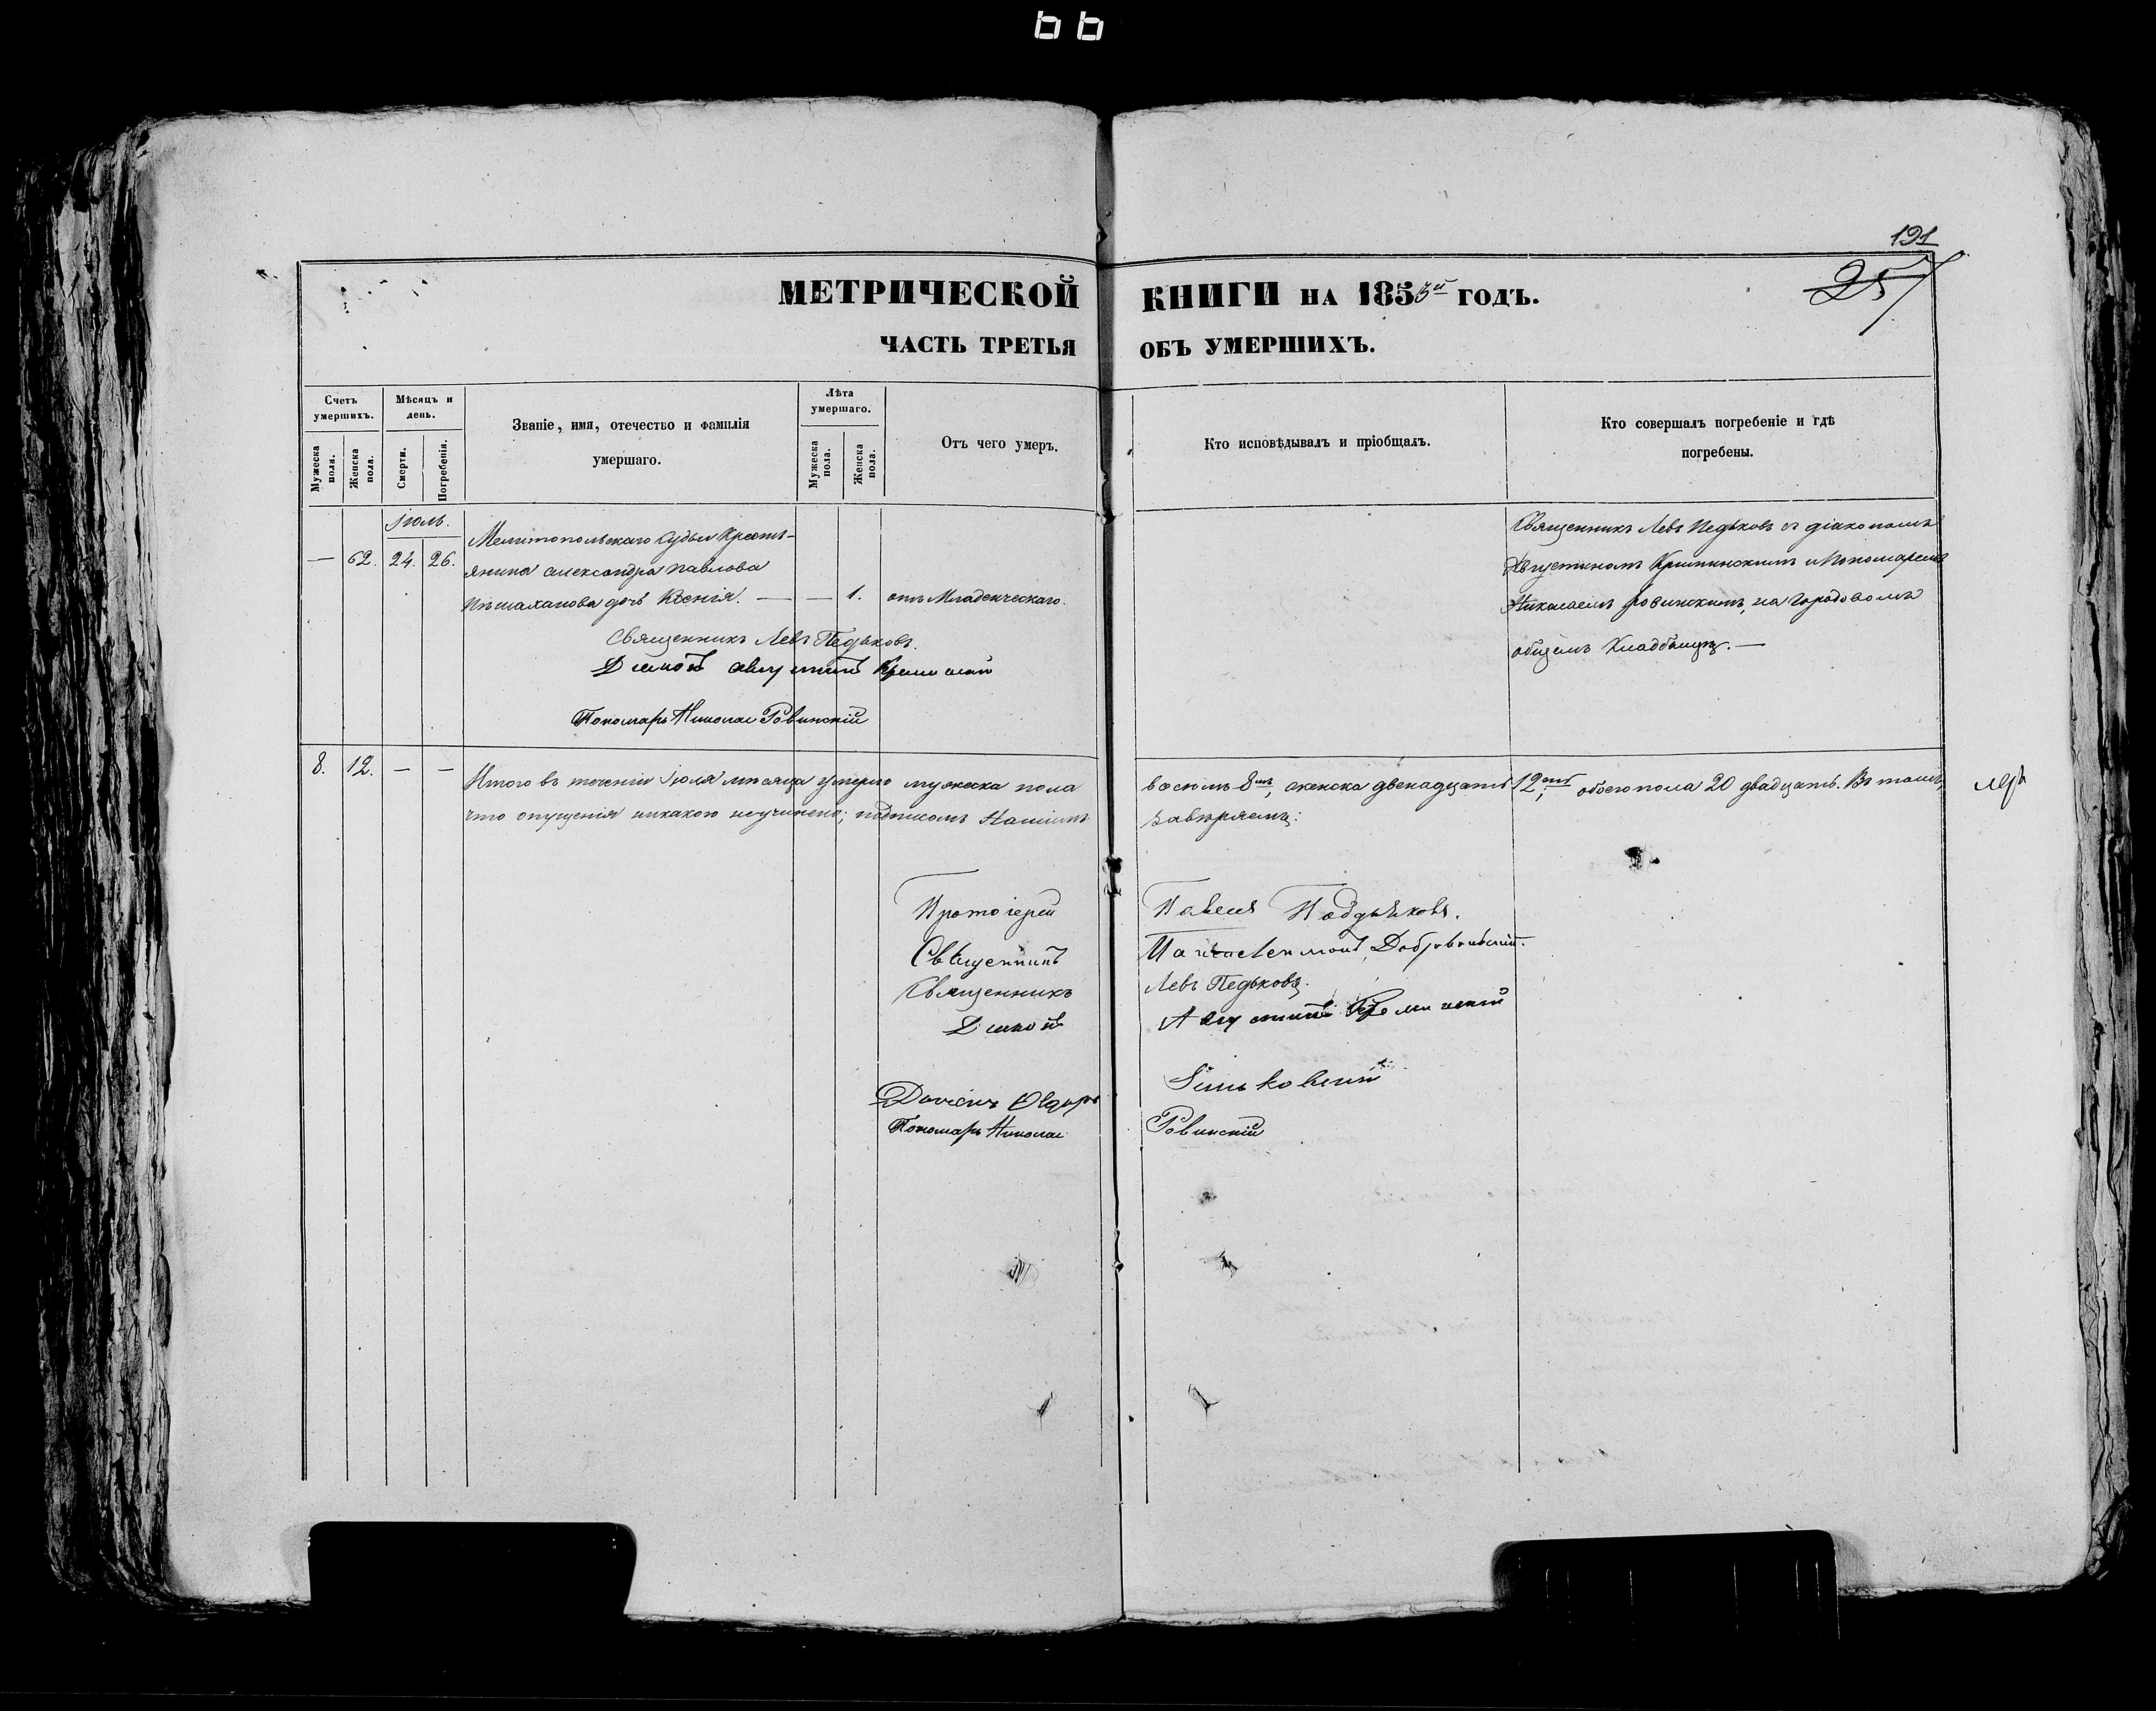 66
191
257
МЕТРИЧЕСКОЙ КНИГИ НА 1853й ГОДЪ.
ЧАСТЬ ТРЕТЬЯ ОБЪ УМЕРШИХЪ.
Счетъ умершихъ.
Мужеска пола.
Женска пола.
Мѣсяцъ и день.
Смерти.
Погребенія.
Званіе, имя, отечество и фамилія
умершаго.
Лѣта умершаго.
Мужеска пола.
Женска пола.
Отъ чего умеръ.
Кто исповѣдывалъ и пріобщалъ.
Кто совершалъ погребеніе и гдѣ
погребены.
Іюль.
— 62. 24. 26.
Мелитопольскаго Судьи Кресть-
янина Александра Павлова
дочь Ксенія. — — 1. отъ Младенческаго.
Священникъ Левъ Педьковъ съ діакономъ
Августиномъ и Пономаремъ
Николаемъ Ровинскимъ, на Городовомъ
общемъ Кладбищѣ. —
Священникъ Левъ Педьковъ.
Діаконъ Августинъ
Пономарь Николай Ровинскій
8. 12. — —
Итого въ теченіи Іюля мѣсяца умерло мужеска пола восемь 8мь, женска двенадцать 12ать, обоего пола 20 двадцать. Въ томъ,
что опущенія никакого неучинено; подписомъ Нашимъ завѣряемъ:
Протоіерей Павелъ Поддьяковъ.
Священникъ Добровольскій.
Священникъ Левъ Педьковъ.
Діаконъ Августинъ
Синьковскій
Пономарь Николай Ровинскій